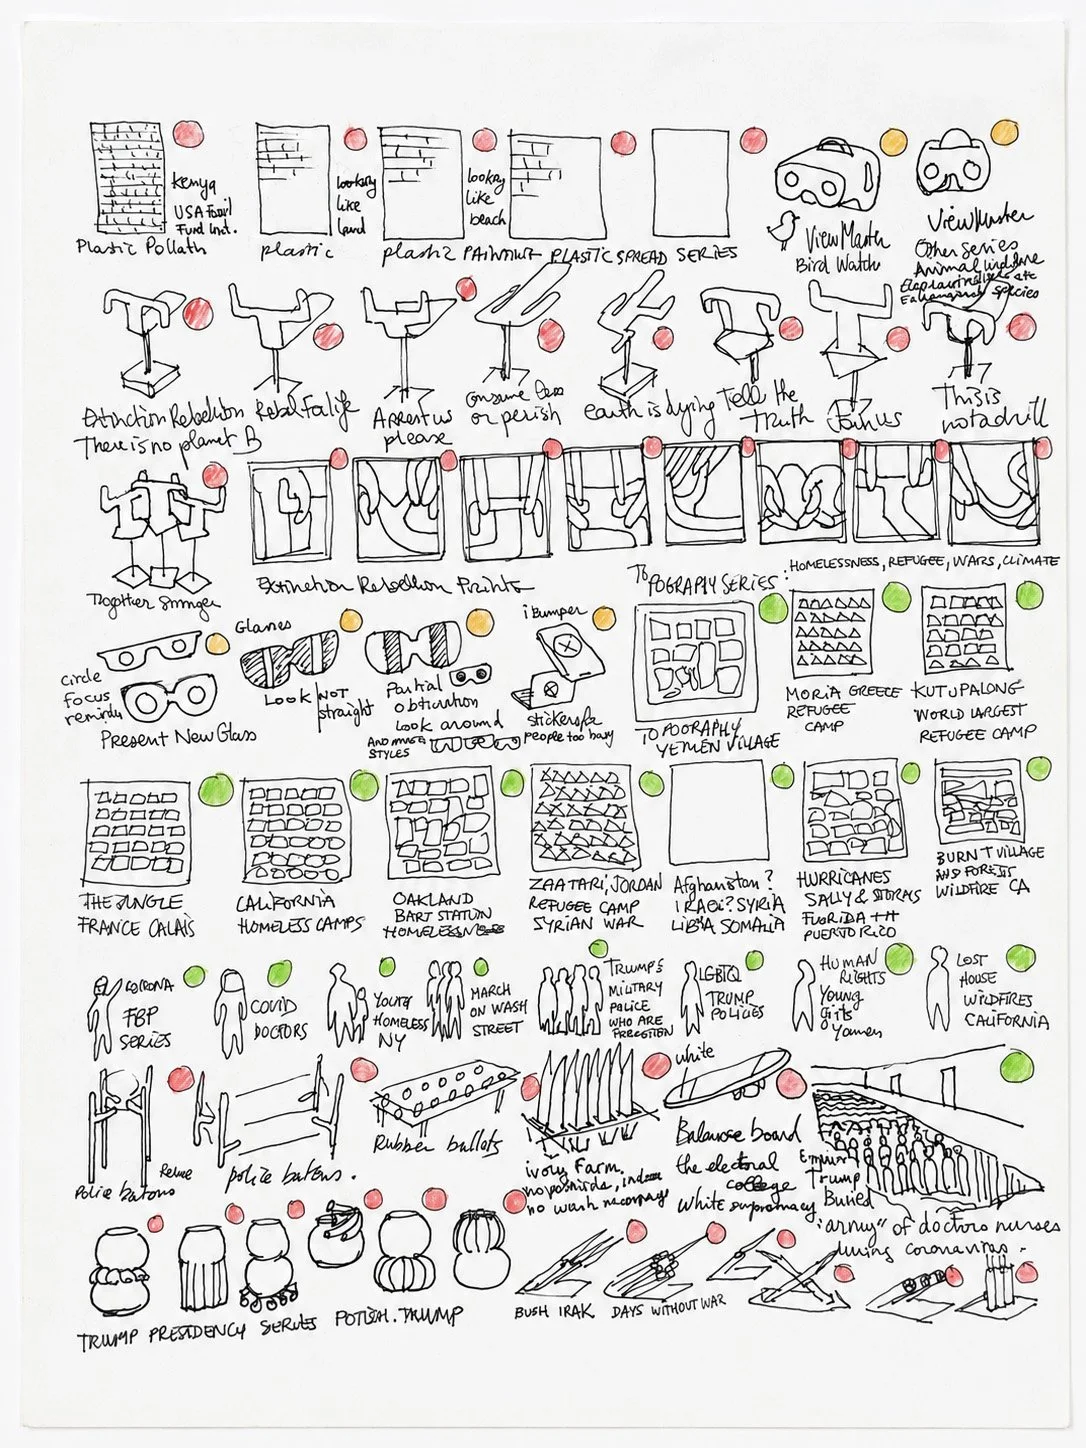 Kenya
USA
Fund
Plastic
plastic
looking
like
land
plastic
looking
like
beach
PLASTIC SPREAD SERIES
View Master
Bird Watch
ViewMaster
Other series
Animal
species
Extinction Rebellion
There is no planet B
Rebel For life
Arrest us
please
Consume less
or perish
earth is dying
Tell the
Truth
Join us
This is
not a drill
Together
Extinction Rebellion Prints
TOPOGRAPHY SERIES:
HOMELESSNESS, REFUGEE, WARS, CLIMATE
circle
focus
Present New Glass
Glasses
Look NOT
straight
Partial
Look around
AND
STYLES
iBumper
stickers for
people too busy
TOPOGRAPHY
YEMEN VILLAGE
MORIA GREECE
REFUGEE
CAMP
KUTUPALONG
WORLD LARGEST
REFUGEE CAMP
THE JUNGLE
FRANCE CALAIS
CALIFORNIA
HOMELESS CAMPS
OAKLAND
BART STATION
HOMELESSNESS
ZAATARI, JORDAN
REFUGEE CAMP
SYRIAN WAR
Afghanistan?
IRAQ? SYRIA
LIBIA SOMALIA
HURRICANES
SALLY &
FLORIDA
PUERTO RICO
BURNT VILLAGE
AND FORESTS
WILDFIRE CA
CORONA
FBP
SERIES
COVID
DOCTORS
YOUNG
HOMELESS
NY
MARCH
ON WASH
STREET
TRUMP'S
MILITARY
POLICE
WHO ARE
LGBTQ
TRUMP
POLICIES
HUMAN
RIGHTS
Young
Girls
LOST
HOUSE
WILDFIRES
CALIFORNIA
Police batons
police batons.
Rubber bullets
ivory Farm.
white
Balance board
the electoral
college
White supremacy
Trump
Buried
"army" of doctors nurses
during coronavirus
TRUMP PRESIDENCY SERIES POTISH. TRUMP
BUSH IRAK
DAYS WITHOUT WAR